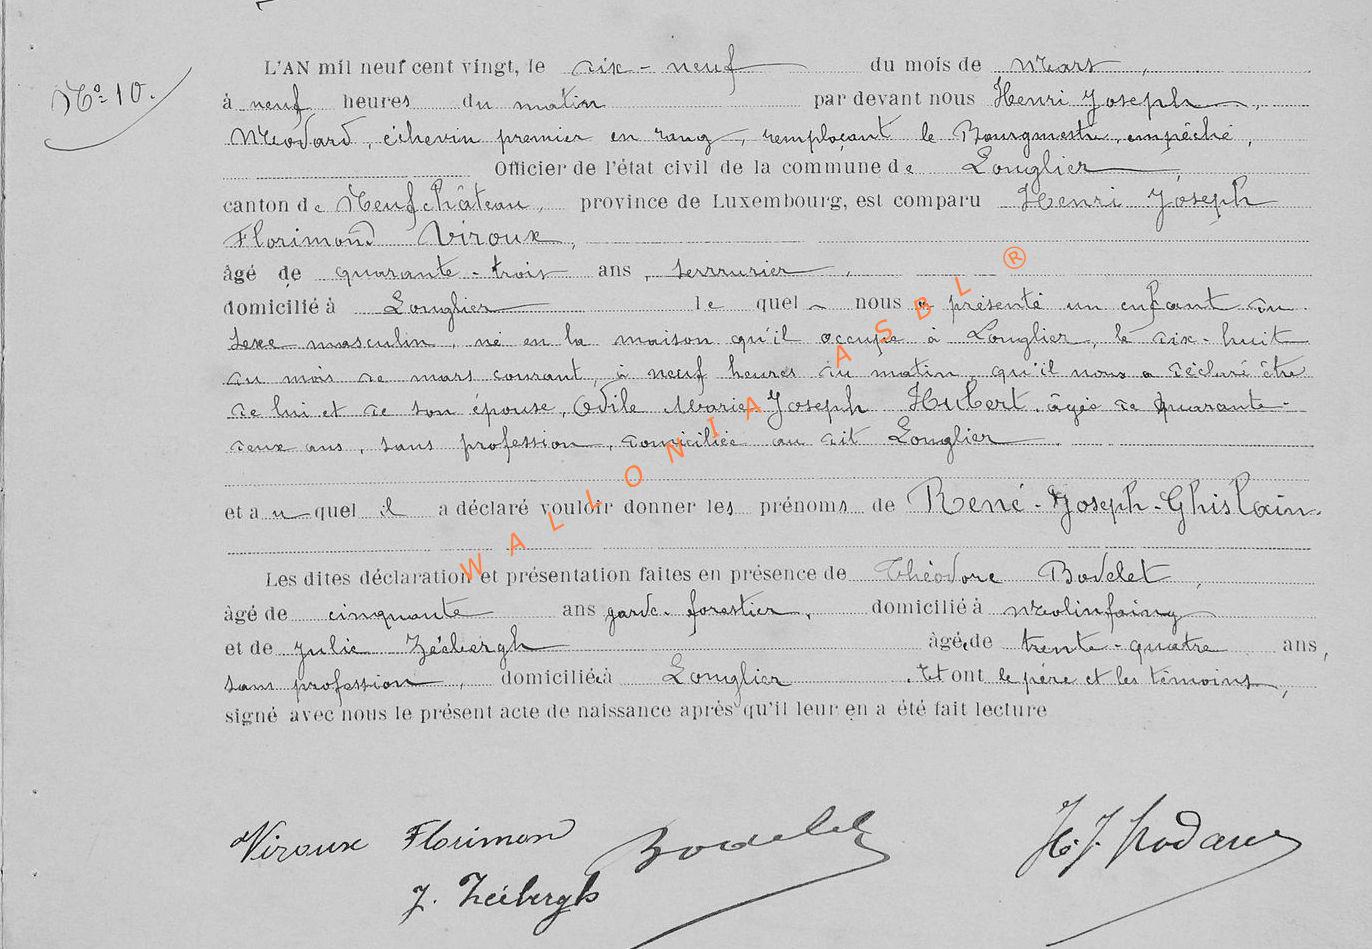 N° 10.
L'AN mil neuf cent vingt, le dix-neuf du mois de Mars,
à neuf heures du matin par devant nous Henri Joseph
échevin premier en rang, remplaçant le Bourgmestre, empêché,
Officier de l'état civil de la commune de Longlier,
canton de Neufchâteau, province de Luxembourg, est comparu Henri Joseph
Florimond Viroux,
âgé de quarante-trois ans, serrurier,
domicilié à Longlier lequel nous a présenté un enfant du
sexe masculin, né en la maison qu'il occupe à Longlier, le dix-huit
du mois de mars courant, à neuf heures du matin, qu'il nous a déclaré être
de lui et de son épouse, Odile Marie Joseph Hubert, âgée de quarante-
deux ans, sans profession, domiciliée au dit Longlier.
et auquel il a déclaré vouloir donner les prénoms de René-Joseph-Ghislain.
Les dites déclaration et présentation faites en présence de Théodore Bodelet,
âgé de cinquante ans garde-forestier, domicilié à Molinfaing
et de Julie Zéebergh âgée de trente-quatre ans,
sans profession, domiciliée à Longlier. Et ont le père et les témoins,
signé avec nous le présent acte de naissance après qu'il leur en a été fait lecture
Viroux Florimond Bodelet H. J.
J. Zéebergh
WALLONIA ASBL ®